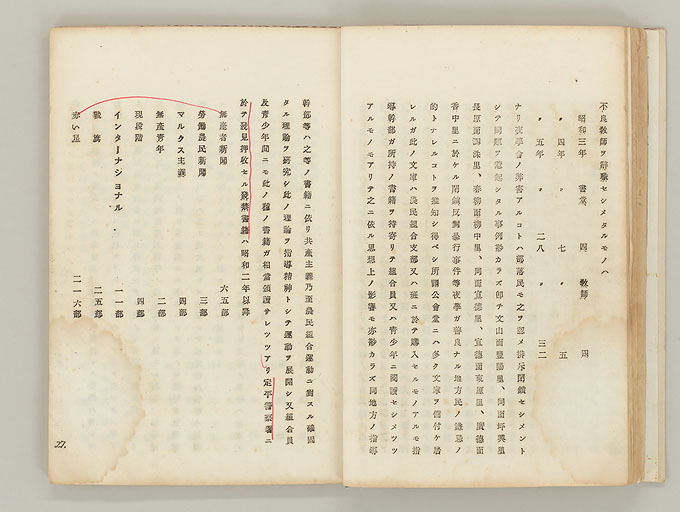 不良敎師ヲ辭職セシメタルモノハ
昭和三年　書堂　四　敎師　四
〃　四年　〃　七　〃　五
〃　五年　〃　二八　〃　三二
ナリ夜學會ノ弊害アルコトハ部落民モ之ヲ認メ排斥閉鎖セシメント
シテ問題ヲ惹起シタル事例尠カラズ卽チ文山面豐陽里、同面坪巽里
長原面 洙里、春柳面柳中里、同面宣德里、宣德面東原里、廣德面
香中里ニ於ケル閉鎖反對暴行事件等夜學ガ善良ナル地方民ノ嫌忌ノ
的トナレルコトヲ推知シ得ベシ所謂公會堂ニハ多ク文庫ヲ備付ケ居
レルガ此ノ文庫ハ農民組合支部又ハ班ニ於テ購入セルモノアルモ指
導幹部ガ所持ノ書籍ヲ持寄リテ組合員又ハ靑少年ニ閱讀セシメツツ
アルモノモアリテ之ニ依ル思想上ノ影響モ亦尠カラズ同地方ノ指導
幹部等ハ之等ノ書籍ニ依リ共產主義乃至農民組合運動ニ對スル確固
タル理論ヲ硏究シ此ノ理論ヲ指導精神トシテ運動ヲ展開シ又組合員
及靑少年間ニモ此ノ種ノ書籍ガ相當頒讀サレツツアリ定平警察署ニ
於テ發見押收セル發禁書籍ハ昭和二年以降
無產者新聞　六五部
勞働農民新聞　三部
マルクス主義　四部
無產靑年　二部
現段階　四部
インターナショナル　一一部
戰旗　二五部
赤い星　二一六部
27.